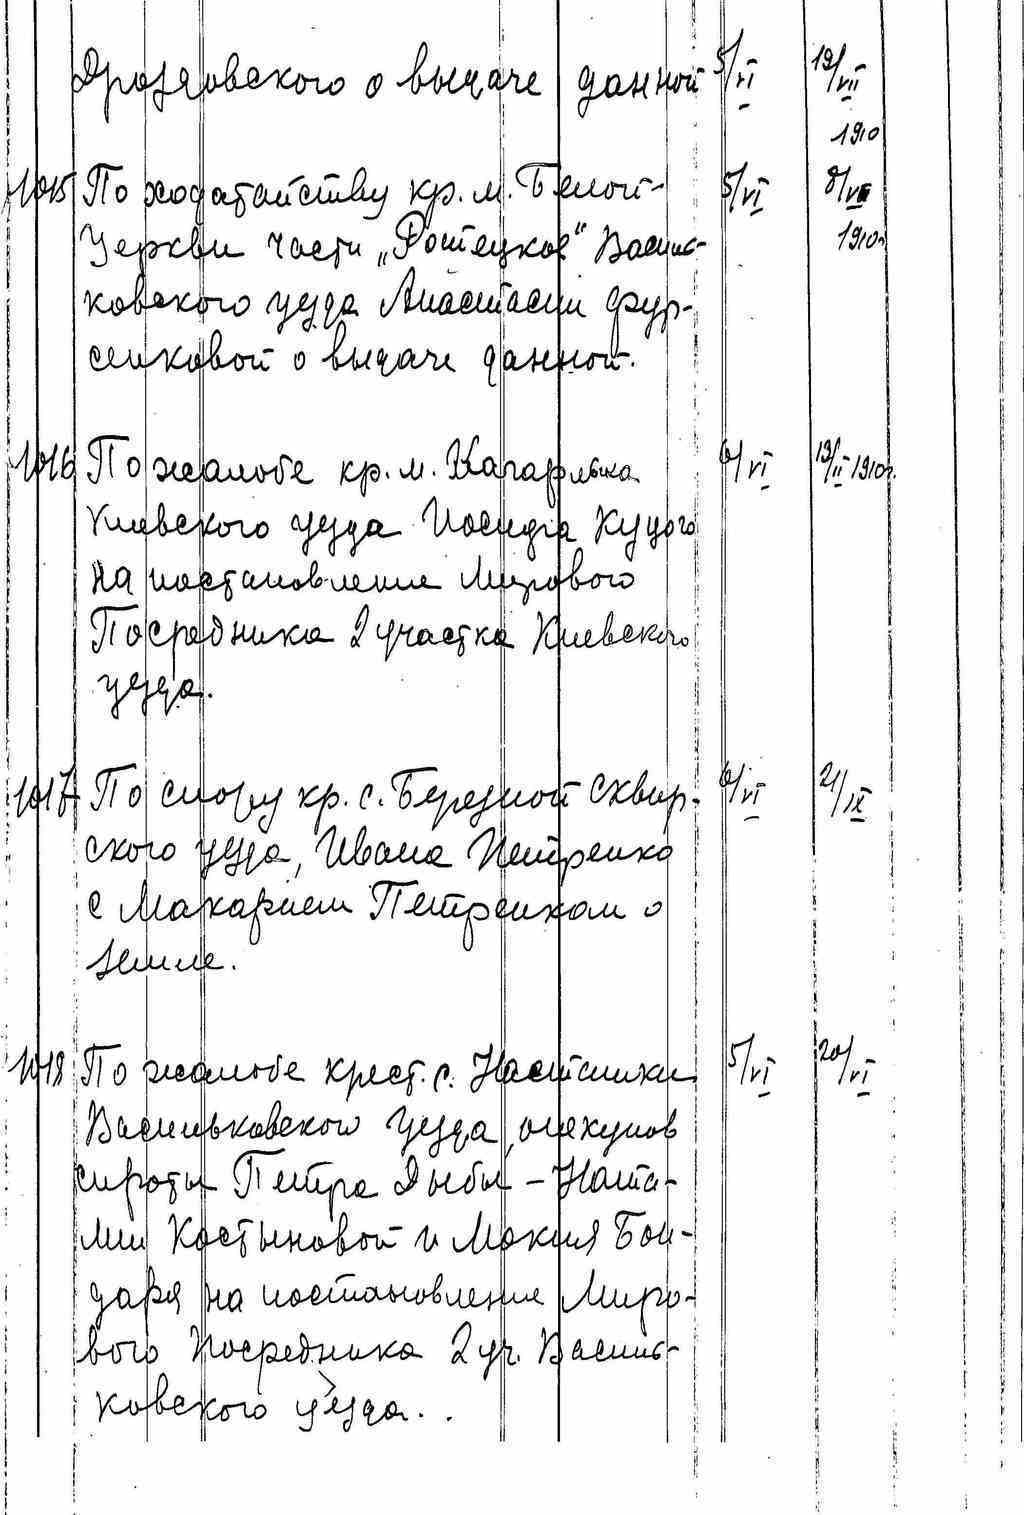 Дроздовского о выдаче данной 5/VI 19/VII
1910
1015 По ходатайству кр. м. Белой- 5/VI 8/VII
Церкви части „Роттецкое" Василь- 1910г
ковского уезда Анастасии Фур-
сенковой о выдаче данной.
1016 По жалобе кр. м. Кагарлыка 6/VI 19/II 1910г.
Киевского уезда Иосифа Куцого
на постановление Мирового
Посредника 2 участка Киевского
уезда.
1017 По спору кр. с. Березной Сквир- 6/VI 21/IX
ского уезда, Ивана Петренко
с Макарием Петренком о
земле.
1018 По жалобе крест. с. Насташки 5/VI 20/VI
Васильковского уезда, опекунов
сироты Петра Дыбы – Ната-
лии Костыновой и Мокия Бон-
даря на постановление Миро-
вого Посредника 2 уч. Василь-
ковского уезда..